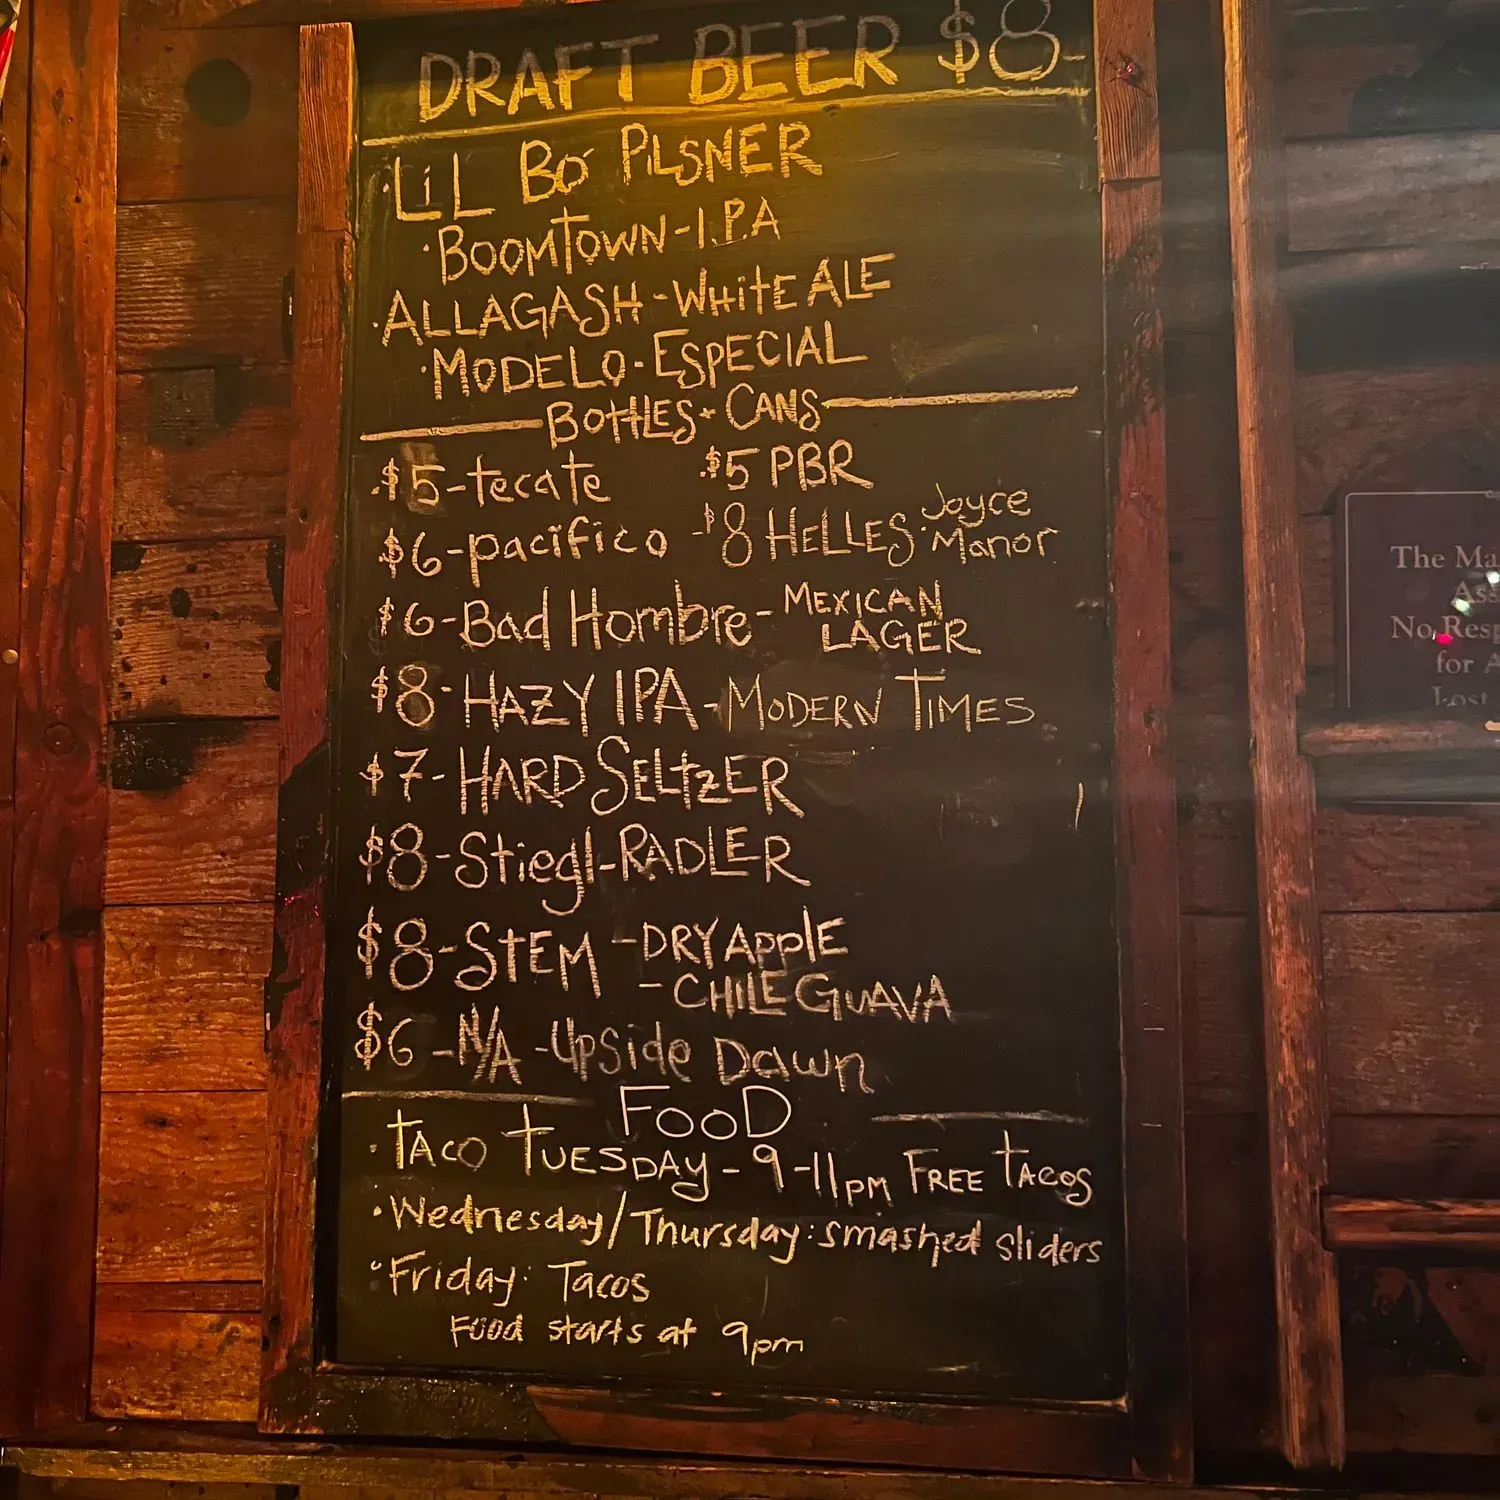 DRAFT BEER $8-
·LiL BO' PILSNER
·BOOMTOWN-I.P.A
·ALLAGASH-WHitE ALE
·MODELO·ESPECIAL
BOttLES+CANS
$5-tecate $5 PBR
$6-pacifico -$8 HELLES·Joyce Manor
$6-Bad Hombre-MEXICAN LAGER
$8-HAZY IPA-MODERN TIMES
$7-HARD SELtzER
$8-Stiegl-RADLER
$8-StEM -DRY APPlE
-CHILE GUAVA
$6-N/A-Upside Dawn
FOOD
·TACO TUESDAY-9-11pm FREE TACOS
·Wednesday/Thursday:smashed sliders
·Friday: Tacos
Food starts at 9pm
The Ma
Ass
No Resp
for A
Lost